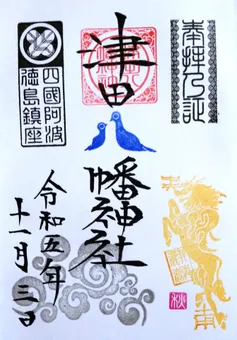 奉拝之証
津田
八幡神社
四國阿波
徳島鎮座
令和五年
十一月三日
秋